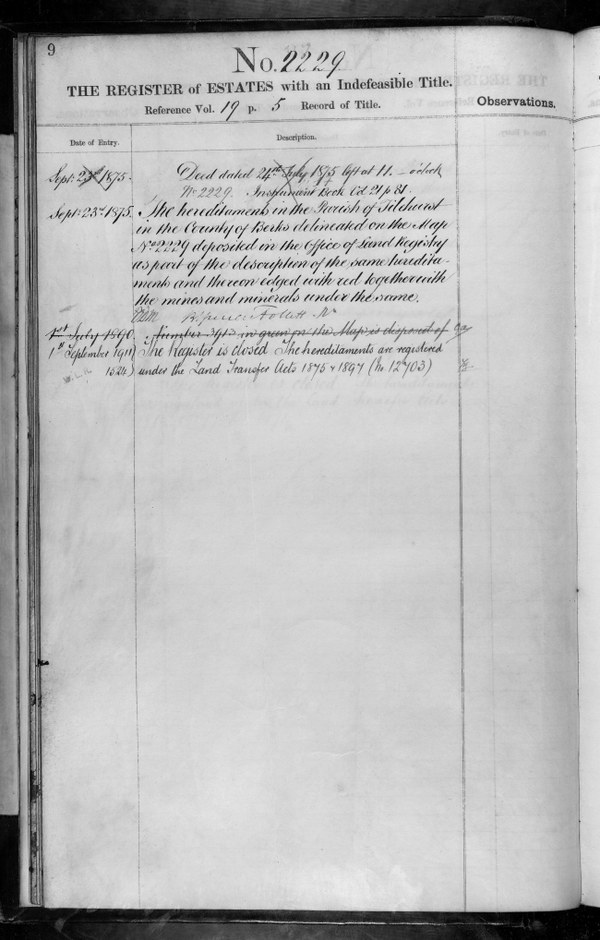 9
No. 2229
THE REGISTER of ESTATES with an Indefeasible Title.
Reference Vol. 19 p. 5 Record of Title.
Observations.
Date of Entry.
Description.
Sept: 23rd 1875.
Deed dated 24th July 1875 left at 11. o'clock
No 2229. Instrument Book Vol. 21 p 81.
Sept: 23rd 1875.
The hereditaments in the Parish of Tilehurst
in the County of Berks delineated on the Map
No 2229 deposited in the Office of Land Registry
as part of the description of the same heredita-
ments and thereon edged with red together with
the mines and minerals under the same.
Brent Spencer Follett
1st July 1890.
Number 391 in green on the Map is disposed of
1st September 1911)
The Register is closed The hereditaments are registered
1524)
under the Land Transfer Acts 1875 & 1897 (No. 12703)